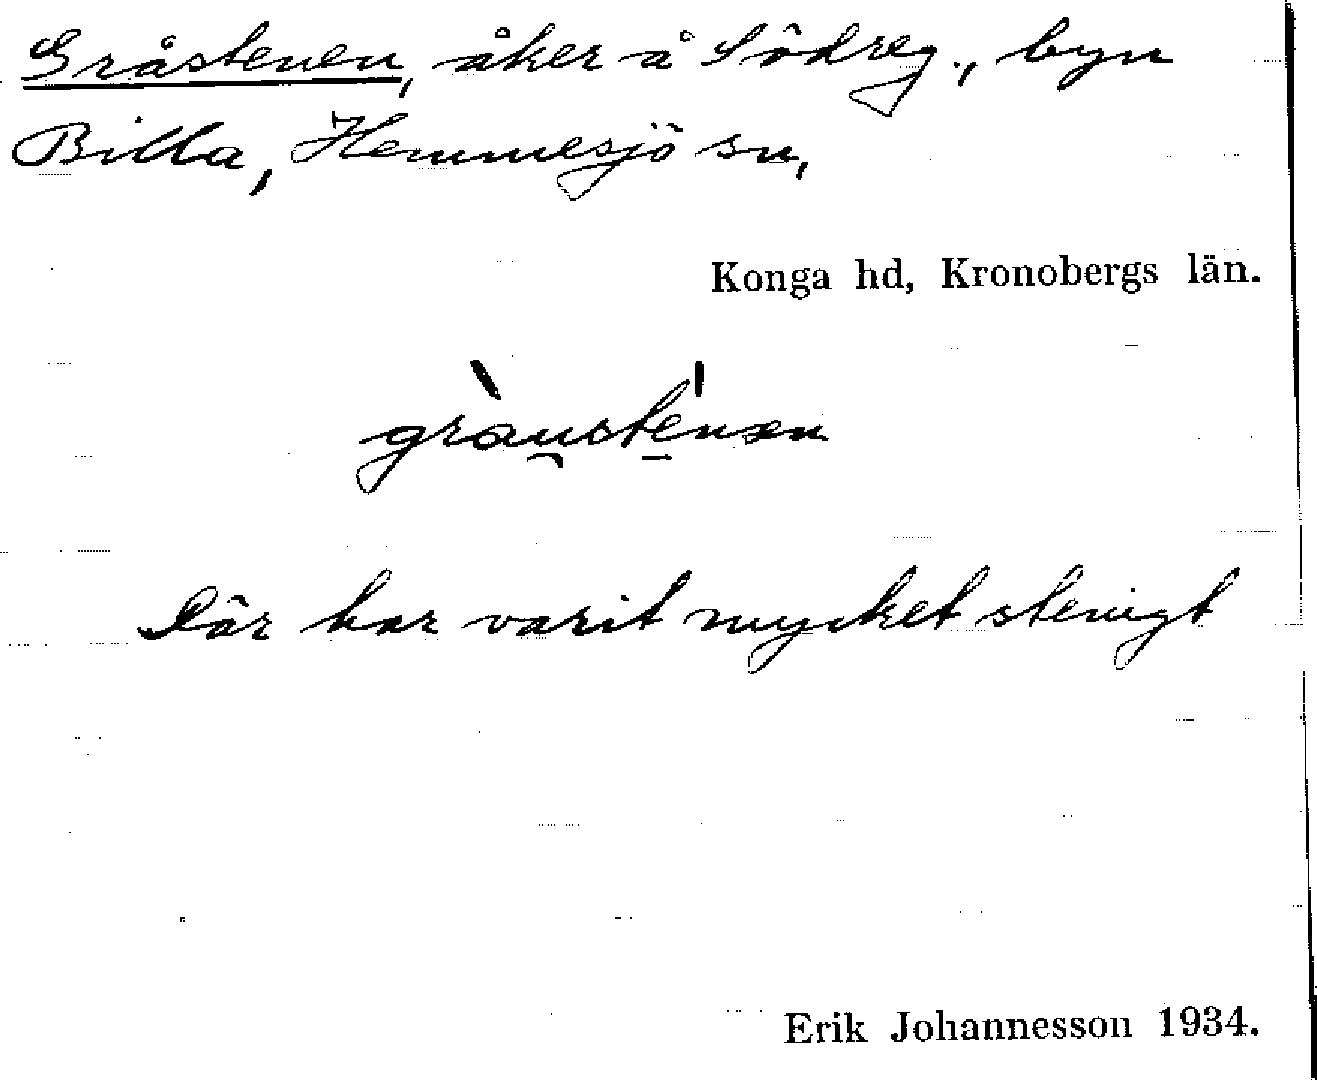 Gråstenen, åker å Södreg., byn
Billa, Hemmesjö sn,
Konga hd, Kronobergs län.
gràu̯sténən
Där har varit mycket stenigt
Erik Johannesson 1934.